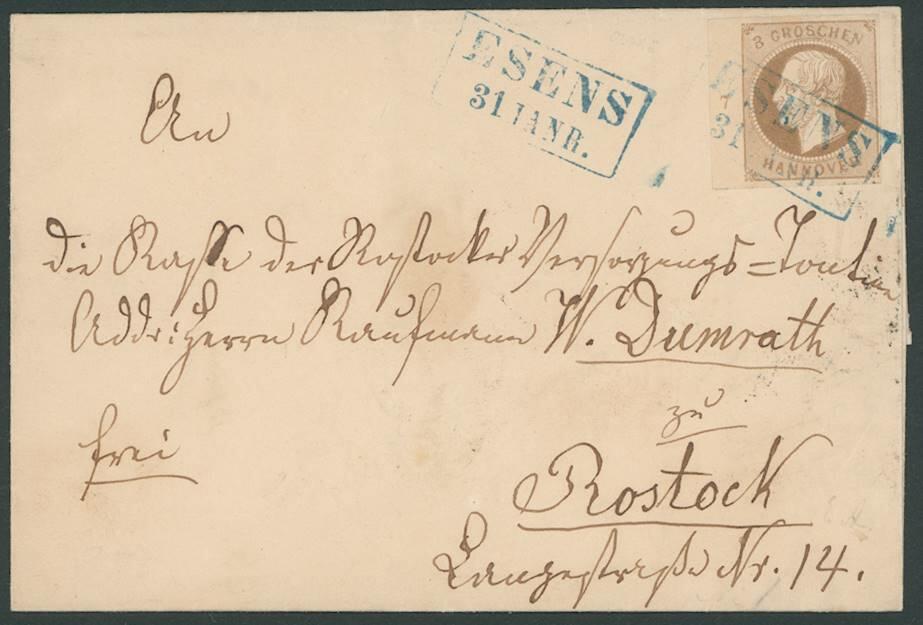 ESENS
31 JANR.
3 GROSCHEN
HANNOVER
ESENS
31 JANR.
An
die Kasse der Rostocker Versorgungs=Tontine
Addr: Herrn Kaufmann W. Dumrath
zu
frei
Rostock
Langestraße Nr. 14.